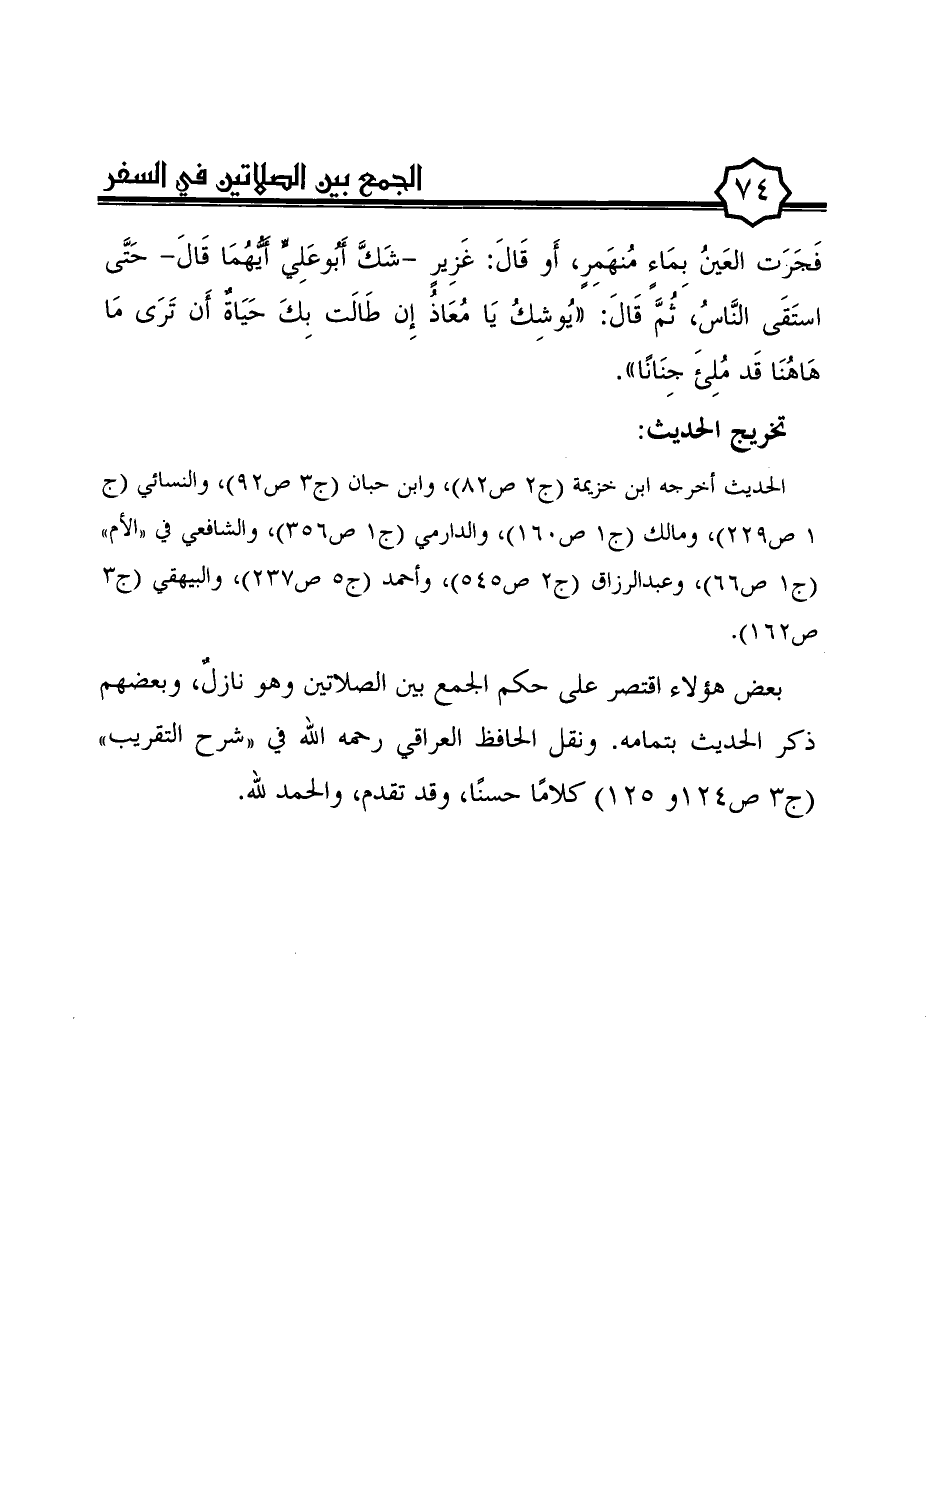 ٧٤
الجمع بين الصلاتين في السفر
فَجَرَت العَينُ بِمَاءٍ مُنهَمِرٍ، أَو قَالَ: غَزِيرٍ -شَكَّ أَبُوعَلِيٍّ أَيُّهُمَا قَالَ- حَتَّى
استَقَى النَّاسُ، ثُمَّ قَالَ: «يُوشِكُ يَا مُعَاذُ إِن طَالَت بِكَ حَيَاةٌ أَن تَرَى مَا
هَاهُنَا قَد مُلِئَ جِنَانًا».
تخريج الحديث:
الحديث أخرجه ابن خزيمة (ج٢ ص٨٢)، وابن حبان (ج٣ ص٩٢)، والنسائي (ج
١ ص٢٢٩)، ومالك (ج١ ص١٦٠)، والدارمي (ج١ ص٣٥٦)، والشافعي في «الأم»
(ج١ ص٦٦)، وعبدالرزاق (ج٢ ص٥٤٥)، وأحمد (ج٥ ص٢٣٧)، والبيهقي (ج٣
ص١٦٢).
بعض هؤلاء اقتصر على حكم الجمع بين الصلاتين وهو نازلٌ، وبعضهم
ذكر الحديث بتمامه. ونقل الحافظ العراقي رحمه الله في «شرح التقريب»
(ج٣ ص١٢٤و ١٢٥) كلامًا حسنًا، وقد تقدم، والحمد لله.